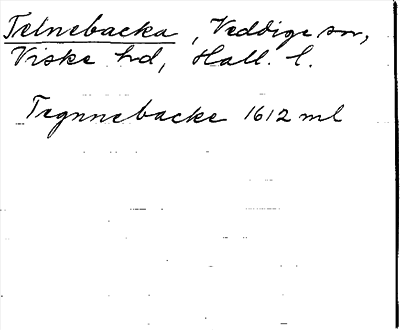 Telnebacka, Veddige sn,
Viske hd, Hall. l.
Tegnnebacke 1612 ml